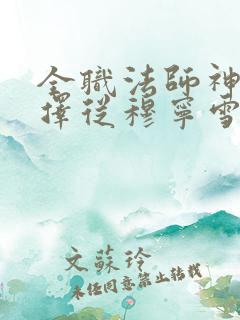 全職法師神
擇從穆寧雪
文蘇玲
未任同意禁止转载